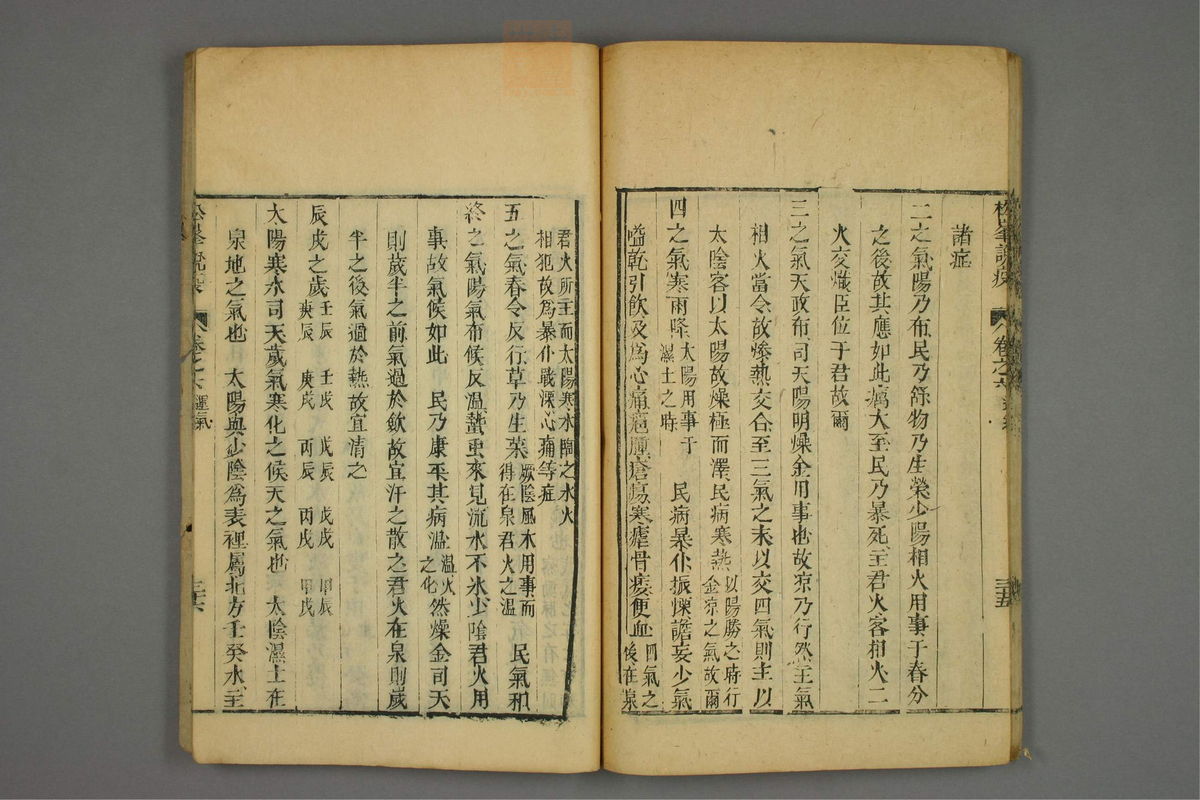 諸症
二之氣陽乃布民乃舒物乃生榮少陽相火用事于春分
之後故其應如此癘大至民乃暴死主君火客相火二
火交熾臣位于君故爾
三之氣天政布司天陽明燥金用事也故凉乃行然主氣
相火當令故燥熱交合至三氣之末以交四氣則主以
太陰客以太陽故燥極而澤民病寒熱以陽勝之時行
金凉之氣故爾
四之氣寒雨降太陽用事于
濕土之時
民病暴仆振慄譫妄少氣
嗌乾引飲及爲心痛癰腫瘡瘍寒瘧骨痿便血四氣之
後在泉
君火所主而太陽寒水臨之水火
相犯故爲暴仆戰慄心痛等症
五之氣春令反行草乃生榮厥陰風木用事而
得在泉君火之溫
民氣和
終之氣陽氣布候反溫蟄虫來見流水不氷少陰君火用
事故氣候如此 民乃康平其病溫溫火
之化
然燥金司天
則歲半之前氣過於歛故宜汗之散之君火在泉則歲
半之後氣過於熱故宜清之
辰戌之歲壬辰 壬戌 戊辰 戊戌 甲辰
庚辰 庚戌 丙辰 丙戌 甲戌
太陽寒水司天歲氣寒化之候天之氣也 太陰濕土在
泉地之氣也 太陽與少陰爲表裡屬北方壬癸水主
松峯說疫
卷之六 運氣
三十六